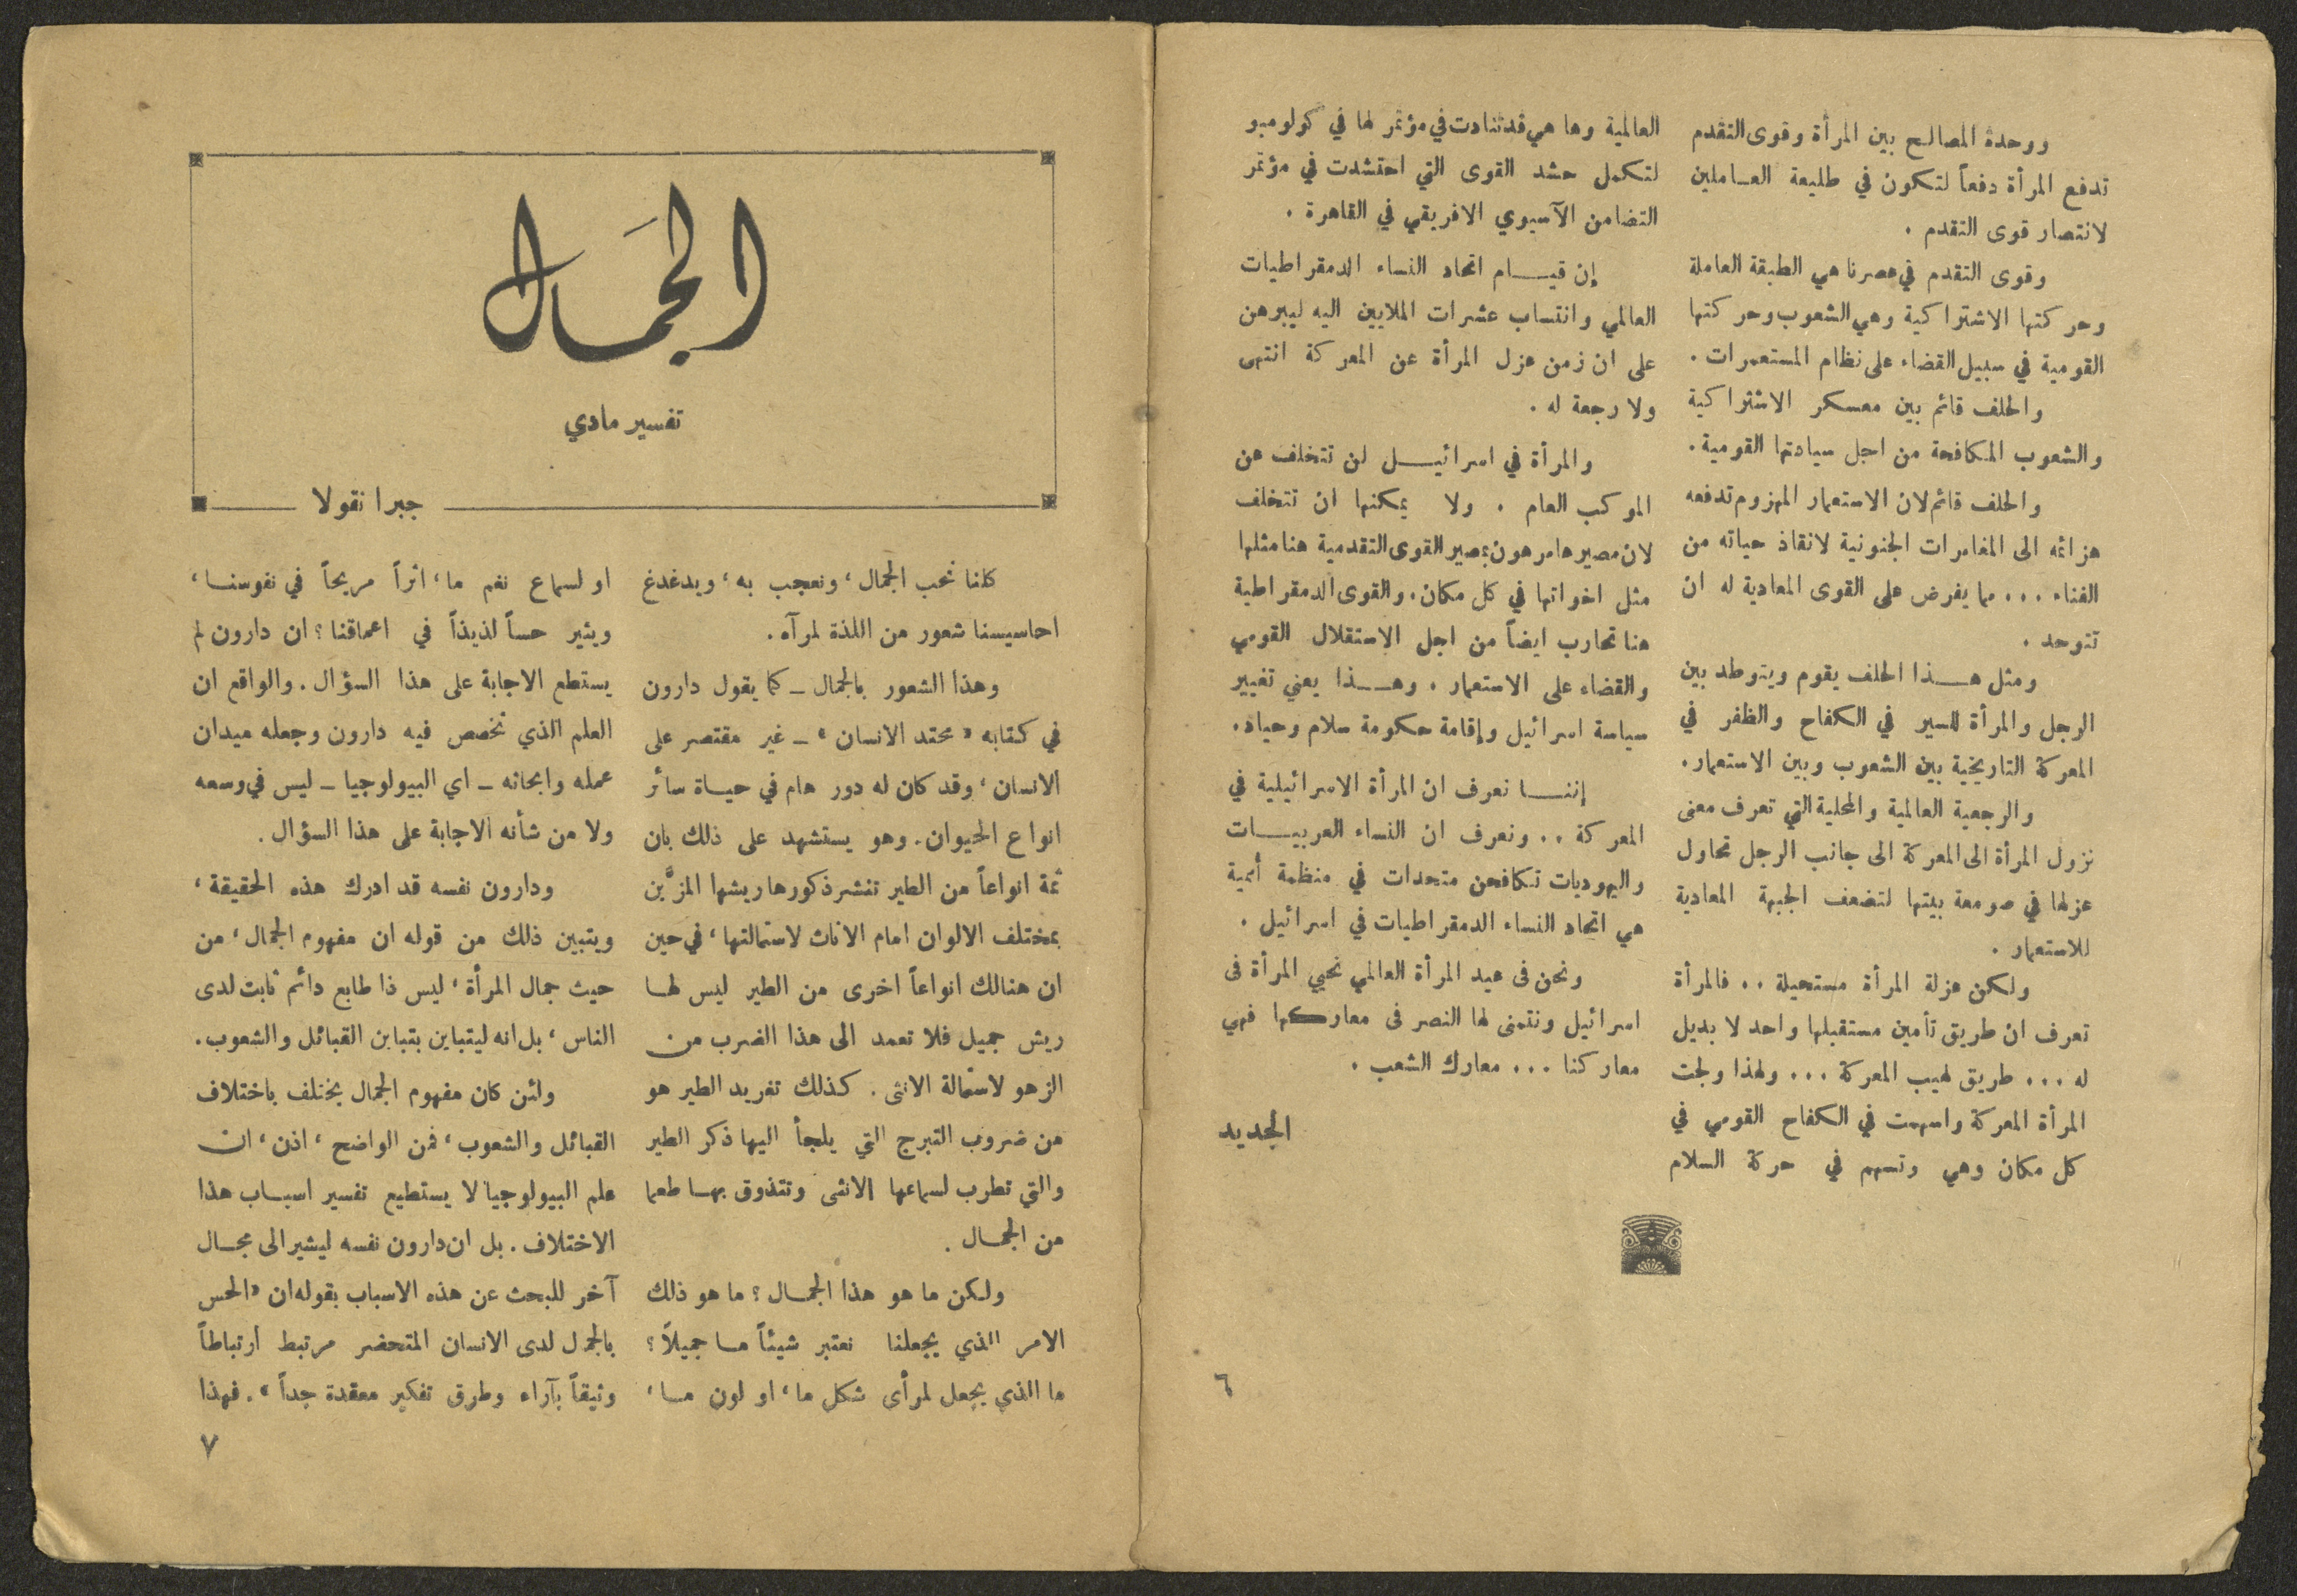 ووحدة المصالح بين المرأة وقوى التقدم
تدفع المرأة دفعاً لتكون في طليعة العـاملين
لانتصار قوى التقدم .
وقوى التقدم في عصرنا هي الطبقة العاملة
وحركتها الاشتراكية وهي الشعوب وحركتها
القومية في سبيل القضاء على نظام المستعمرات .
والحلف قائم بين معسكر الاشتراكية
والشعوب المكافحة من اجل سيادتها القومية .
والحلف قائم لان الاستعمار المهزوم تدفعه
هزائمه الى المغامرات الجنونية لانقاذ حياته من
الفناء ... مما يفرض على القوى المعادية له ان
تتوحد .
ومثل هـــذا الحلف يقوم ويتوطد بين
الرجل والمرأة للسير في الكفاح والظفر في
المعركة التاريخية بين الشعوب وبين الاستعمار .
والرجعية العالمية والمحلية التي تعرف معنى
نزول المرأة الى المعركة الى جانب الرجل تحاول
عزلها في صومعة بيتها لتضعف الجبهة المعادية
للاستعمار .
ولكن عزلة المرأة مستحيلة .. فالمرأة
تعرف ان طريق تأمين مستقبلها واحد لا بديل
له ... طريق لهيب المعركة ... ولهذا ولجت
المرأة المعركة واسهمت في الكفاح القومي في
كل مكان وهي وتسهم في حركة السلام
العالمية وها هي قد تنادت في مؤتمر لها في كولومبو
لتكمل حشد القوى التي احتشدت في مؤتمر
التضامن الآسيوي الافريقي في القاهرة .
إن قيـــام اتحاد النساء الدمقراطيات
العالمي وانتساب عشرات الملايين اليه ليبرهن
على ان زمن عزل المرأة عن المعركة انتهى
ولا رجعة له .
والمرأة في اسرائيـــل لن تتخلف عن
الموكب العام . ولا يمكنها ان تتخلف
لان مصيرها مرهون بمصير القوى التقدمية هنا مثلها
مثل اخواتها في كل مكان . والقوى الدمقراطية
هنا تحارب ايضاً من اجل الاستقلال القومي
والقضاء على الاستعمار . وهـــذا يعني تغيير
سياسة اسرائيل وإقامة حكومة سلام وحياد .
إننـــا نعرف ان المرأة الاسرائيلية في
المعركة .. ونعرف ان النساء العربيـــات
واليهوديات تكافحن متحدات في منظمة أممية
هي اتحاد النساء الدمقراطيات في اسرائيل .
ونحن فى عيد المرأة العالمي نحيي المرأة فى
اسرائيل ونتمنى لها النصر فى معاركها فهي
معاركنا ... معارك الشعب .
الجديد
٦
الجمَال
تفسير مادي
جبرا نقولا
كلنا نحب الجمال ، ونعجب به ، ويدغدغ
احاسيسنا شعور من اللذة لمرآه .
وهذا الشعور بالجمال ـ كما يقول دارون
في كتابه « محتد الانسان » ـ غير مقتصر على
الانسان ، وقد كان له دور هام في حيـاة سائر
انواع الحيوان . وهو يستشهد على ذلك بان
ثمة انواعاً من الطير تنشر ذكورها ريشها المزيَّن
بمختلف الالوان امام الاناث لاستمالتها ، في حين
ان هنالك انواعاً اخرى من الطير ليس لهـا
ريش جميل فلا تعمد الى هذا الضرب من
الزهو لاستمالة الانثى . كذلك تغريد الطير هو
من ضروب التبرج التي يلجأ اليها ذكر الطير
والتي تطرب لسماعها الانثى وتتذوق بهـا طعما
من الجمـال .
ولكن ما هو هذا الجمـال ؟ ما هو ذلك
الامر الذي يجعلنا نعتبر شيئاً مـا جميلاً ؟
ما الذي يجعل لمرأى شكل ما ، او لون مـا ،
او لسماع نغم ما ، اثراً مريحاً في نفوسنـا ،
ويثير حساً لذيذاً في اعماقنا ؟ ان دارون لم
يستطع الاجابة على هذا السؤال . والواقع ان
العلم الذي تخصص فيه دارون وجعله ميدان
عمله وابحاثه ـ اي البيولوجيا ـ ليس في وسعه
ولا من شأنه الاجابة على هذا السؤال .
ودارون نفسه قد ادرك هذه الحقيقة ،
ويتبين ذلك من قوله ان مفهوم الجمال ، من
حيث جمال المرأة ، ليس ذا طابع دائم ثابت لدى
الناس ، بل انه ليتباين بتباين القبائل والشعوب .
ولئن كان مفهوم الجمال يختلف باختلاف
القبائل والشعوب ، فمن الواضح ، اذن ، ان
علم البيولوجيا لا يستطيع تفسير اسبـاب هذا
الاختلاف . بل ان دارون نفسه ليشير الى مجـال
آخر للبحث عن هذه الاسباب بقوله ان « الحس
بالجمال لدى الانسان المتحضر مرتبط ارتباطاً
وثيقاً بآراء وطرق تفكير معقدة جداً » . فهذا
٧